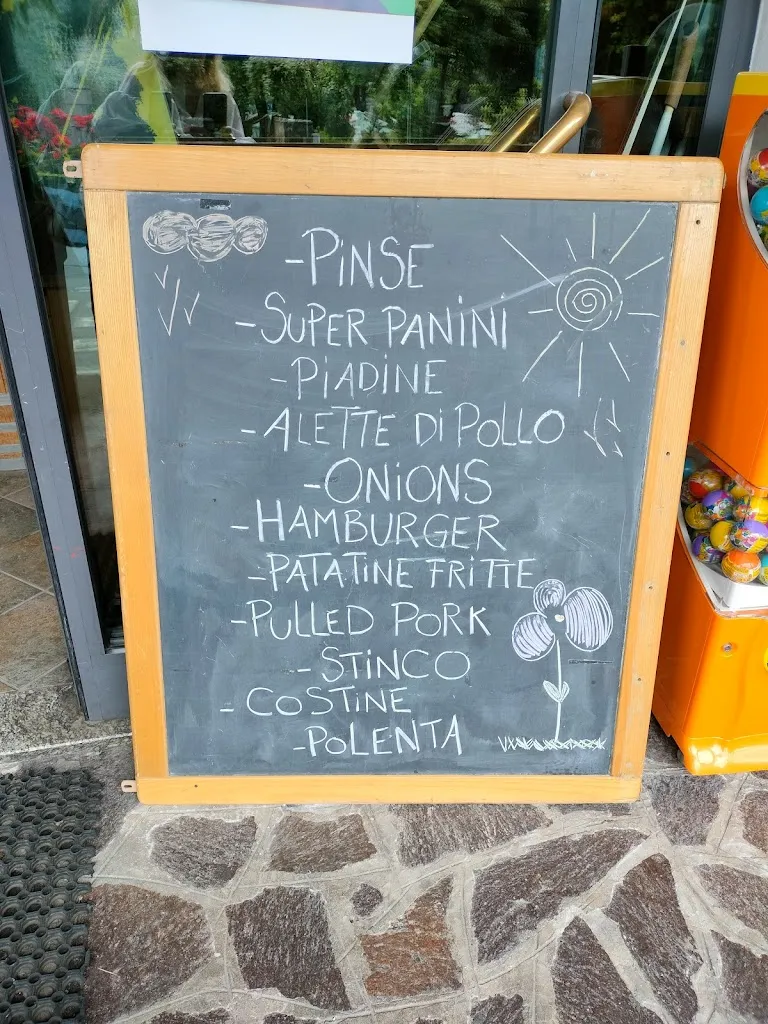 -PiNSE
-SUPER PANiNi
-PiADiNE
-ALETTE Di POLLO
-ONiONS
-HAMBURGER
-PATATiNE FRiTTE
-PULLED PORK
-STiNCO
-COSTiNE
-POLENTA